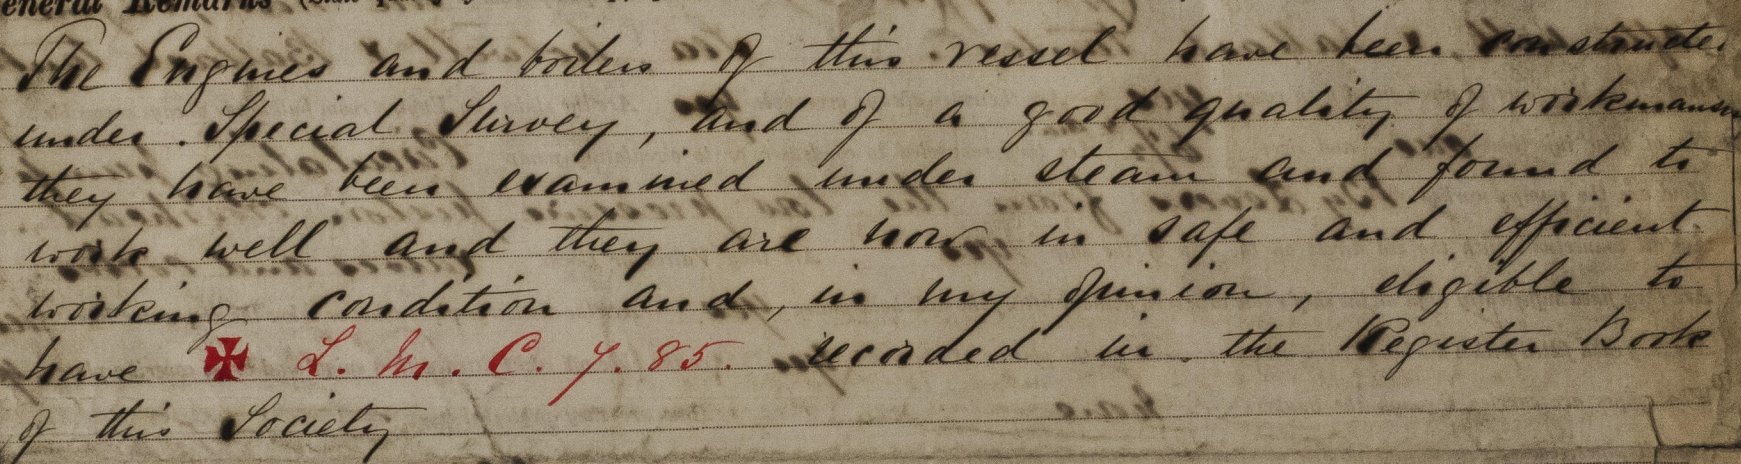 General Remarks
The Engines and boilers of this vessel have been constructe
under Special Survey, and of a good quality of workmans
they have been examined under steam and found to
work well and they are now in safe and efficient
working condition and, in my opinion, eligible to
have ✠ L. M. C. 7. 85. recorded in the Register Book
of this Society